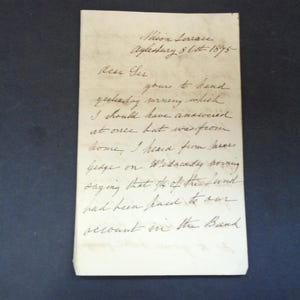 Terrace
Aylesbury 8th 1875
Dear Sir
yours to hand
yesterday morning which
I should have answered
at once but was from
home, I heard from
on Wednesday morning
saying that of the fund
had been paid to our
account in the Bank